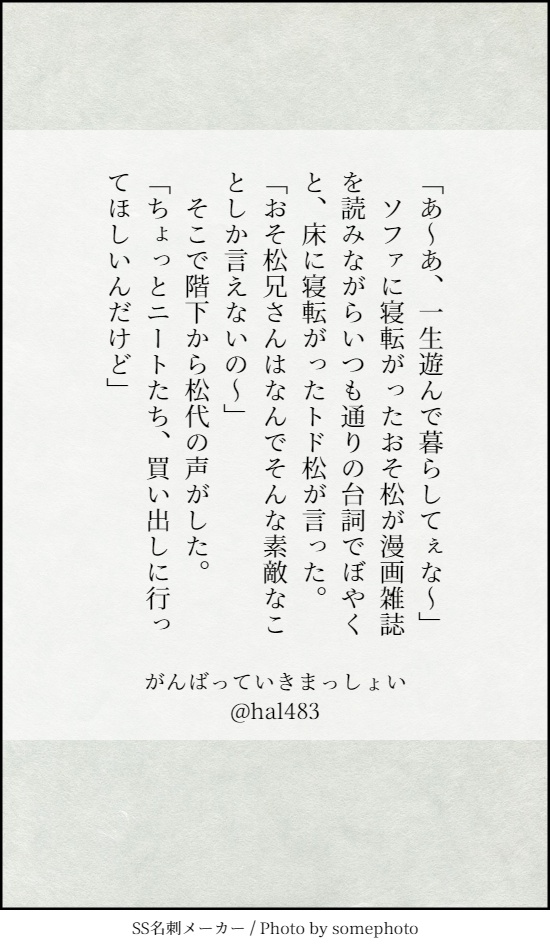 「あ〜あ、一生遊んで暮らしてぇな〜」
　ソファに寝転がったおそ松が漫画雑誌
を読みながらいつも通りの台詞でぼやく
と、床に寝転がったトド松が言った。
「おそ松兄さんはなんでそんな素敵なこ
としか言えないの〜」
　そこで階下から松代の声がした。
「ちょっとニートたち、買い出しに行っ
てほしいんだけど」
がんばっていきまっしょい
@hal483
SS名刺メーカー / Photo by somephoto